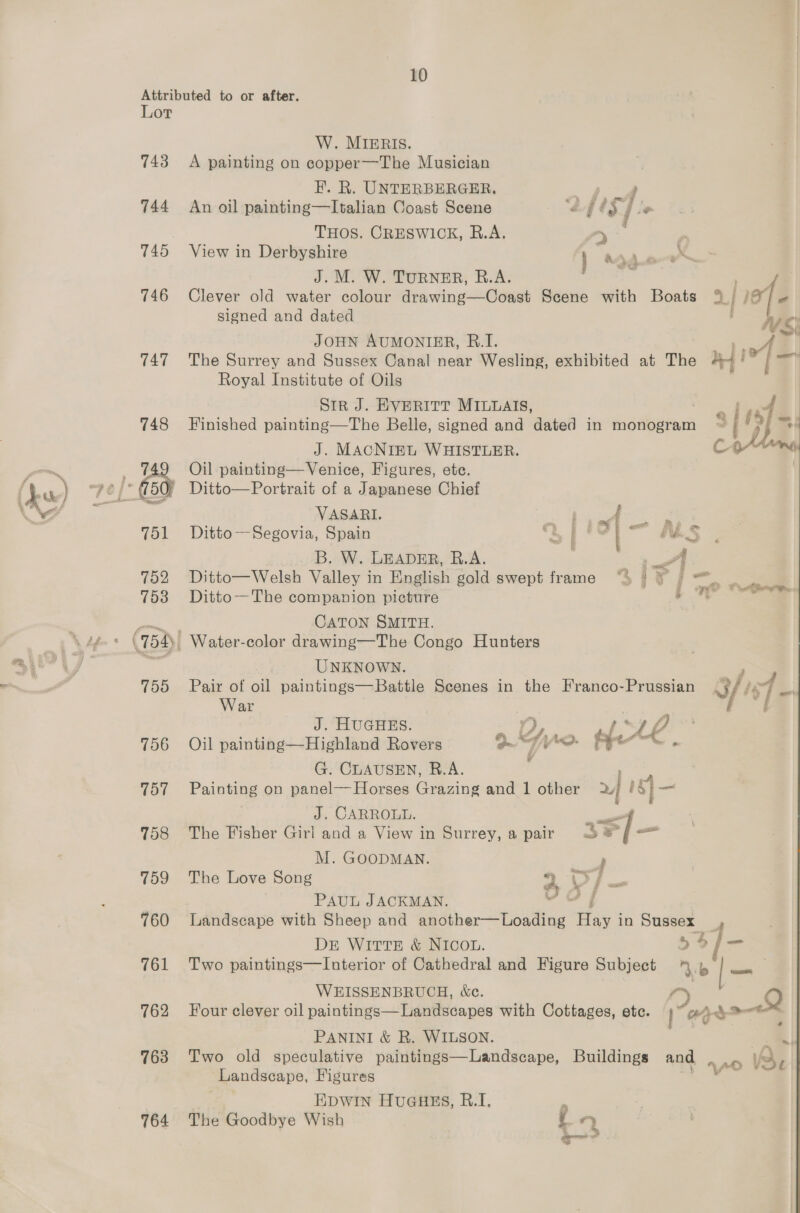 10
Attributed to or after.
Lot
W. MIERIS.
743 A painting on copper—The Musician
F. R. UNTERBERGER.
744 An oil painting—Italian Coast Scene
THOS. CRESWICK, R.A.
745 View in Derbyshire
J. M. W. TURNER, R.A.
746 Clever old water colour drawing—Coast Scene with Boats
signed and dated
JOHN AUMONIER, R.I.
747 The Surrey and Sussex Canal near Wesling, exhibited at The
Royal Institute of Oils
SIR J. EVERITT MILLAIS,
748 Finished painting—The Belle, signed and dated in monogram
J. MACNIEL WHISTLER.
749 Oil painting—Venice, Figures, etc.
750 Ditto—Portrait of a Japanese Chief
VASARI.
751 Ditto—Segovia, Spain
B. W. LEADER, R.A.
752 Ditto—Welsh Valley in English gold swept frame
753 Ditto—The companion picture
CATON SMITH.
754 Water-color drawing—The Congo Hunters
UNKNOWN.
755 Pair of oil paintings—Battle Scenes in the Franco-Prussian
War
J. HUGHES.
756 Oil painting—Highland Rovers
G. CLAUSEN, R.A.
757 Painting on panel—Horses Grazing and 1 other
J. CARROLL.
758 The Fisher Girl and a View in Surrey, a pair
M. GOODMAN.
759 The Love Song
PAUL JACKMAN.
760 Landscape with Sheep and another—Loading Hay in Sussex
DE WITTE & NICOL.
761 Two paintings—Interior of Cathedral and Figure Subject
WEISSENBRUCH, &c.
762 Four clever oil paintings—Landscapes with Cottages, etc.
PANINI & R. WILSON.
763 Two old speculative paintings—Landscape, Buildings and
Landscape, Figures
EDWIN HUGHES, R.I.
764 The Goodbye Wish